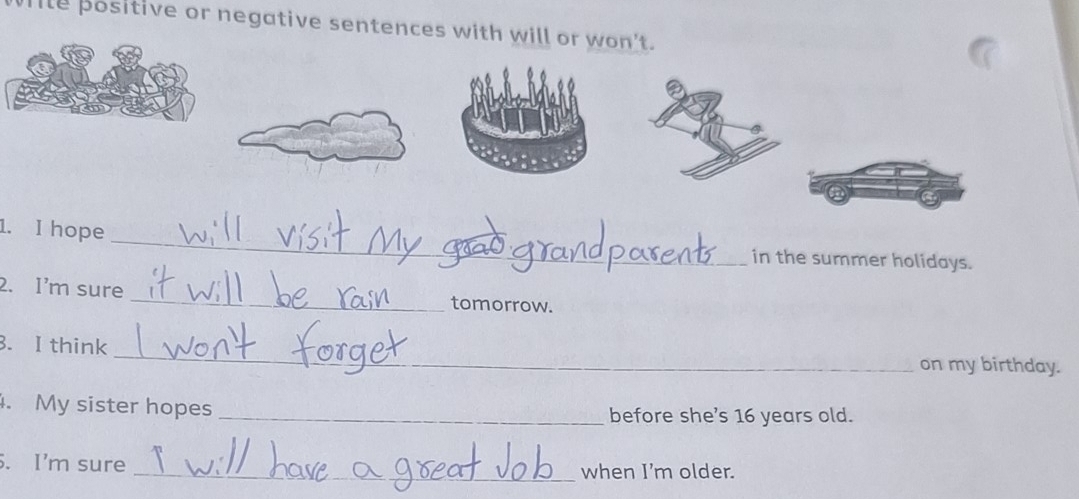 Write positive or negative sentences with will or won't.
1. I hope will visit My grandparents in the summer holidays.
2. I'm sure it will be rain tomorrow.
3. I think I won't forget on my birthday.
4. My sister hopes before she's 16 years old.
5. I'm sure I will have a great Job when I'm older.